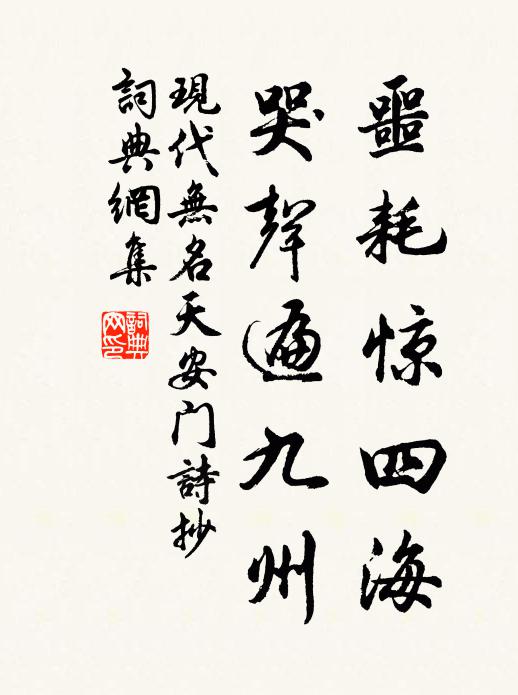 噩耗惊四海
哭聲遍九州
現代無名天安门詩抄
詞典網集
詞典网印